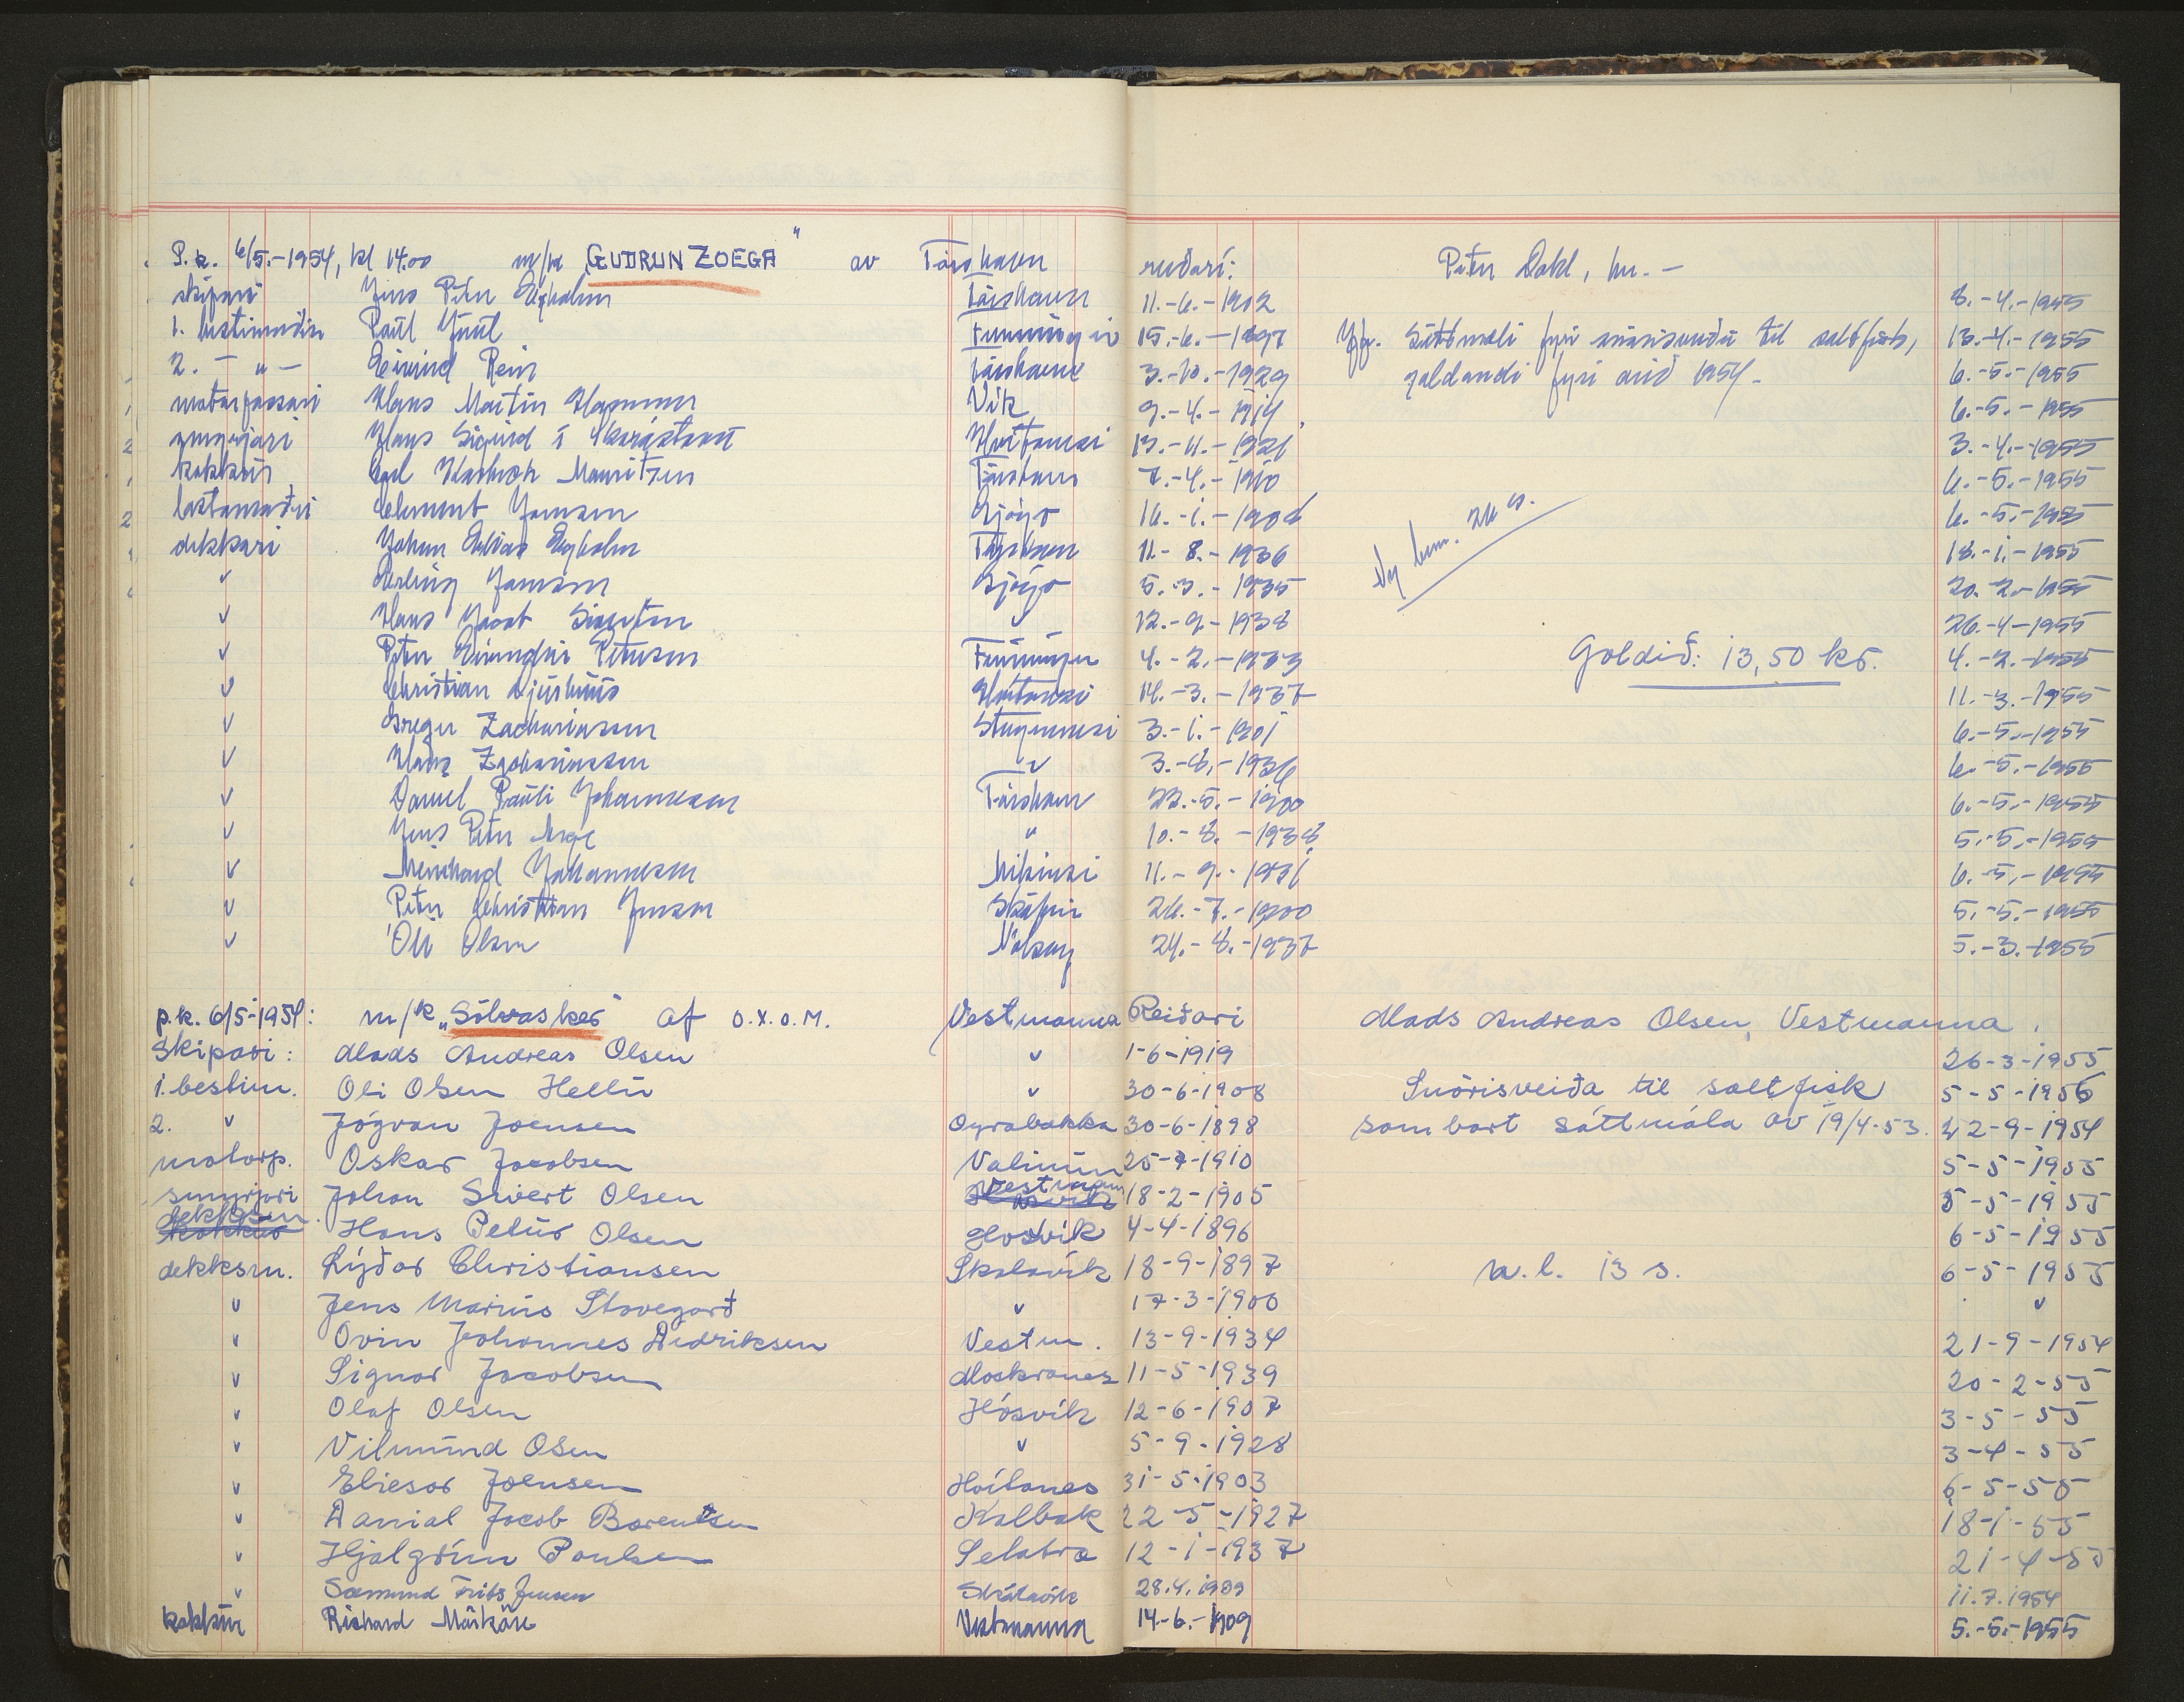 P.k. 6/5.-1954, kl 14.00 m/k „GUDRUN ZOEGA" av Tórshavn reiðari: Petur Dahl, hr. -
skipari Jens Peter Egholm Tórshavn 11.-6.-1902 8.-4.-1955
1. bestimaður Paul Juul Funningi 15.-6.-1897 Jfr. Sáttmáli fyri snørisveiðu til saltfisk, 13.-4.-1955
2. - " - Eivind Rein Tórshavn 3.-10.-1929 galdandi fyri árið 1954.- 6.-5.-1955
motorpassari Hans Martin Hammer Vík 9.-4.-1914 6.-5.-1955
smyrjari Hans Sigurd í Hvítanesi 13.-11.-1921 3.-4.-1955
kokkur Mauritzen Tórshavn 7.-4.-1910 6.-5.-1955
lastamaður Clement Jensen Gjógv 16.-1.-1908 Ny 26 s. 6.-5.-1955
dekkari Johan Egholm Tórshavn 11.-8.-1936 18.-1.-1955
v Erling Jensen Gjógv 5.-3.-1935 20.-2.-1955
v Hans Jacob v 12.-9.-1938 26.-4-1955
v Petur Petersen Funningur 4.-2.-1933 Goldið: 13,50 kr. 4.-2.-1955
v Christian Hvítanesi 14.-3.-1937 11.-3.-1955
v Zachariassen 3.-1.-1901 6.-5.-1955
v Hans Zachariassen v 3.-8.-1936 6.-5.-1955
v Daniel Pauli Johannesen Tórshavn 22.-5.-1900 6.-5.-1955
v Jens Petur " 10.-8.-1938 5.-5.-1955
v Meinhard Johannesen 11.-9.- 6.-5.-1955
v Petur Christian Jensen 26.-7.-1900 5.-5.-1955
v Óli Olsen Nólsoy 24.-8.-1937 5.-3.-1955
p.k. 6/5-1954: m/k „Sólvasker" af O.X.O.M. Vestmanna Reiðari Mads Andreas Olsen, Vestmanna.
Skipari: Mads Andreas Olsen v 1-6-1919 26-3-1955
1. bestim. Oli Olsen Hellu v 30-6-1908 Snørisveiða til saltfisk 5-5-1956
2. v Jógvan Joensen Oyrabakka 30-6-1898 sambært sáttmála av 19/4-53. 22-9-1954
motorp. Oskar Jacobsen Valinum 25-7-1910 5-5-1955
smyrjari Johan Sivert Olsen Vestmann 18-2-1905 5-5-1955
dekksm. Hans Petur Olsen Hósvík 4-4-1896 6-5-1955
dekksm. Lýðar Christiansen Skálavík 18-9-1897 n.l. 13 s. 6-5-1955
v Jens Marius Stovegard v 17-3-1900 v
v Ovin Johannes Didriksen Vestm. 13-9-1934 21-9-1954
v Signar Jacobsen Morskranes 11-5-1939 20-2-55
v Olaf Olsen Hósvík 12-6-1907 3-5-55
v Vilmund Olsen v 5-9-1928 3-4-55
v Eliesar Joensen Hvítanes 31-5-1903 6-5-55
v Danial Jacob Barentsen Kalbak 22-5-1927 18-1-55
v Hjalgrím Poulsen Selatra 12-1-1937 21-4-55
v Sæmund Frits Jensen Skálavík 28.4.1909 11.7.1954
kokkur Richard Mørkøre Vestmanna 14-6.-1909 5.-5.-1955